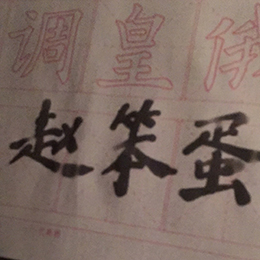 调皇俄
赵笨蛋